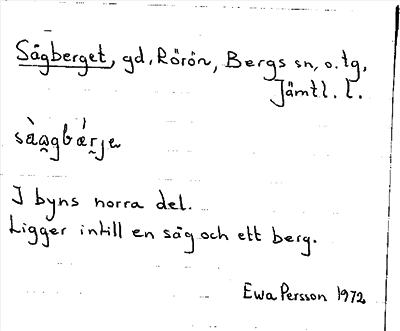 Sågberget, gd, Rörön, Bergs sn, o. tg,
Jämtl. l.
sàa̯gbǽrje
I byns norra del.
Ligger intill en såg och ett berg.
Ewa Persson 1972